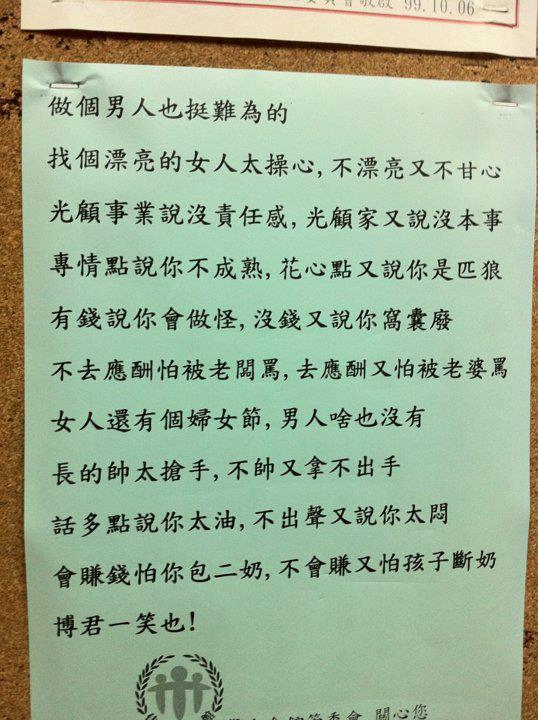 員會敬啟 99.10.06
做個男人也挺難為的
找個漂亮的女人太操心, 不漂亮又不甘心
光顧事業說沒責任感, 光顧家又說沒本事
專情點說你不成熟, 花心點又說你是匹狼
有錢說你會做怪, 沒錢又說你窩囊廢
不去應酬怕被老闆罵, 去應酬又怕被老婆罵
女人還有個婦女節, 男人啥也沒有
長的帥太搶手, 不帥又拿不出手
話多點說你太油, 不出聲又說你太悶
會賺錢怕你包二奶, 不會賺又怕孩子斷奶
博君一笑也!
委會 關心您